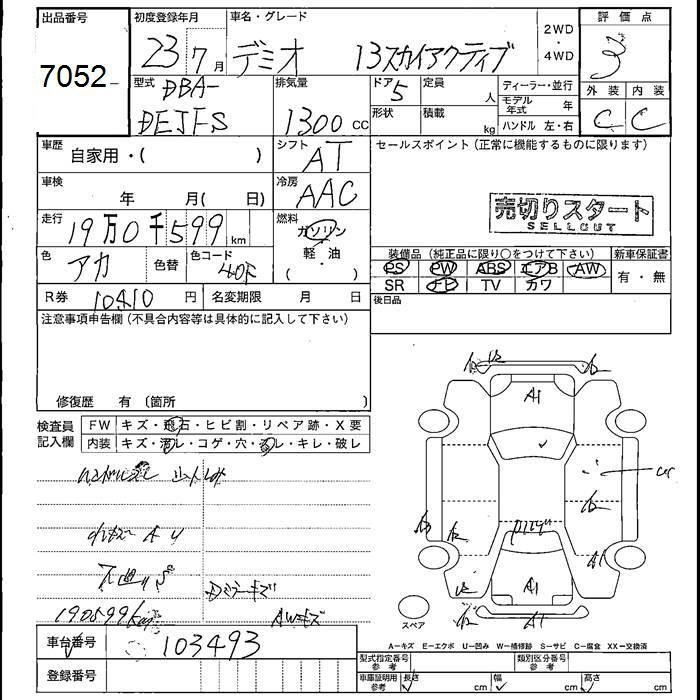 出品番号
7052
初度登録年月
23 7 月
車名・グレード
デミオ 13スカイアクティブ
2WD
・
4WD
評価点
3
外装 内装
C C
型式
DBA-
DEJFS
排気量
1300 cc
ドア
5
定員
人
形状
積載
kg
ディーラー・並行
モデル年式 年
ハンドル 左・右
車歴
自家用・( )
シフト
AT
車検
年 月( 日)
冷房
AAC
走行
19万0千599 km
燃料
ガソリン
軽・油
( )
色
アカ
色替
色コード
R券
10410 円
名変期限 月 日
セールスポイント (正常に機能するものに限ります)
売切りスタート
SELLOUT
装備品 (純正品に限り○をつけて下さい)
新車保証書
PS PW ABS エアB AW
SR TV カワ
有・無
後日品
注意事項申告欄 (不具合内容等は具体的に記入して下さい)
修復歴 有 〔箇所
検査員
記入欄
FW キズ・飛石・ヒビ割・リペア跡・X要
内装 キズ・汚レ・コゲ・穴・スレ・キレ・破レ
190599km
AWキズ
A1
A1
A1
A1
スペア
A=キズ E=エクボ U=凹み W=補修跡 S=サビ C=腐食 XX=交換済
車台番号
103493
登録番号
型式指定番号
参考
類別区分番号
参考
車庫証明用
参考
長さ cm
幅 cm
高さ cm